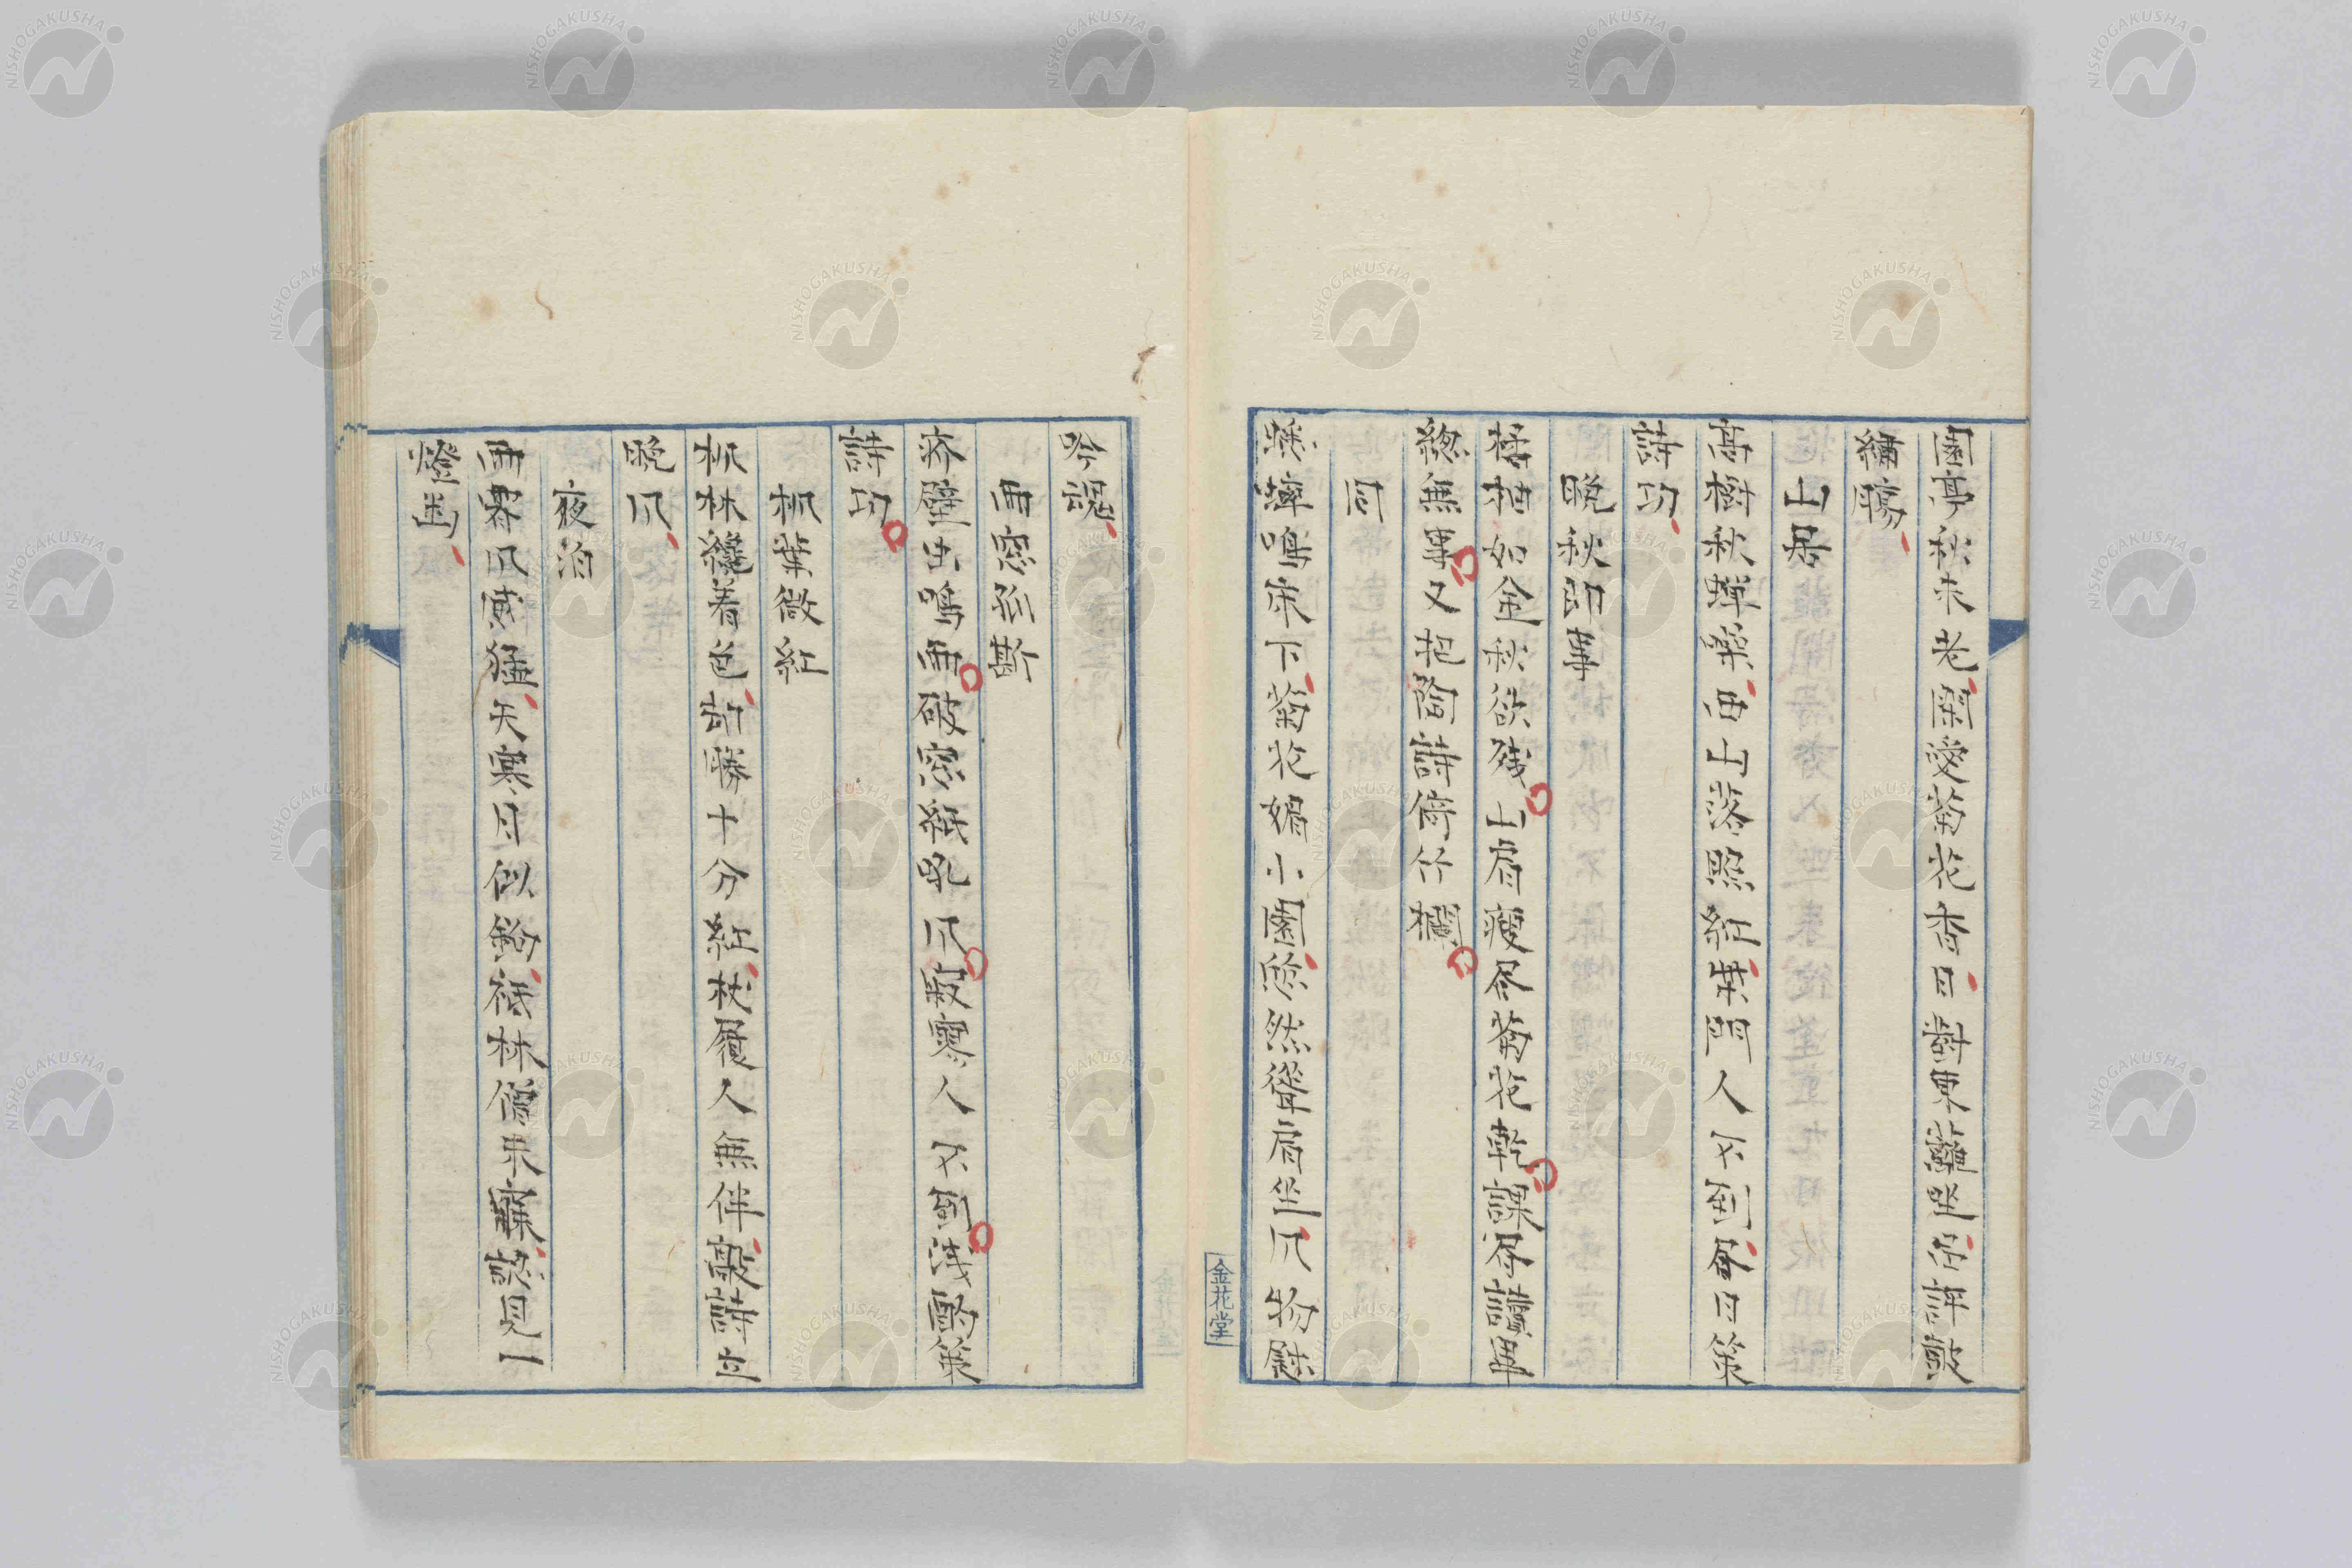 園亭秋未老閑愛菊花香日對東籬坐新詩敲
繡膓
山居
高樹秋蟬藥西山落照紅柴門人不到昏日策
詩功
晩秋即事
橘柚如金秋欲殘山眉瘦尽菊花乾課餘讀畢
総無事又把陶詩倚竹欄
同
蟋蟀鳴床下菊花媚小園悠然聳肩坐風物慰
吟魂
雨窓即斯
齊壁虫鳴雨破窓紙吼風寂寞人不到淺酌策
詩功
楓葉微紅
楓林纔着色却勝十分紅杖履人無伴敲詩立
晩風
夜泊
雨霽風威猛天寒月似鉤祗林僧未寐認見一
燈幽
金花堂